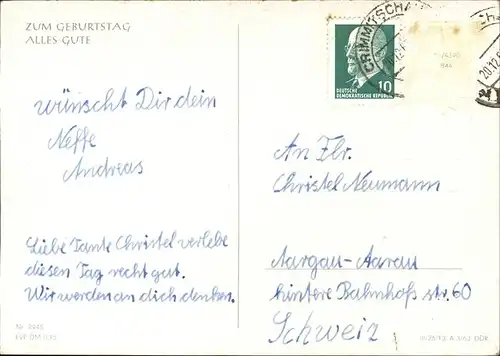 ZUM GEBURTSTAG
ALLES GUTE
wünscht Dir dein
Neffe
Andreas
Liebe Tante Christel verlebe
diesen Tag recht gut.
Wir werden an dich denken.
CRIMMITSCHAU
10
DEUTSCHE
DEMOKRATISCHE REPUBLIK
20.12.
An Flr.
Christel Neumann
Aargau-Aarau
hintere Bahnhofs str. 60
Schweiz